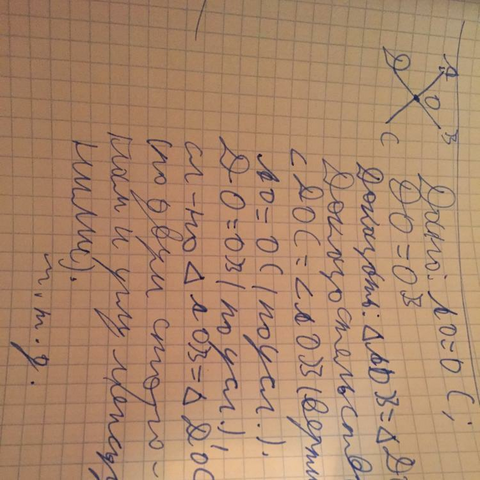 А
D
О
В
С
Дано: АО=ОС;
DO=OB
Доказать: ΔАОВ=ΔDO
Доказательств
∠DOC=∠AOB (верти
АО=ОС (по усл.);
DO=OB (по усл.);
сл-но ΔАОВ=ΔDOC
(по двум сторо-
нам и углу между
ними).
ч.т.д.